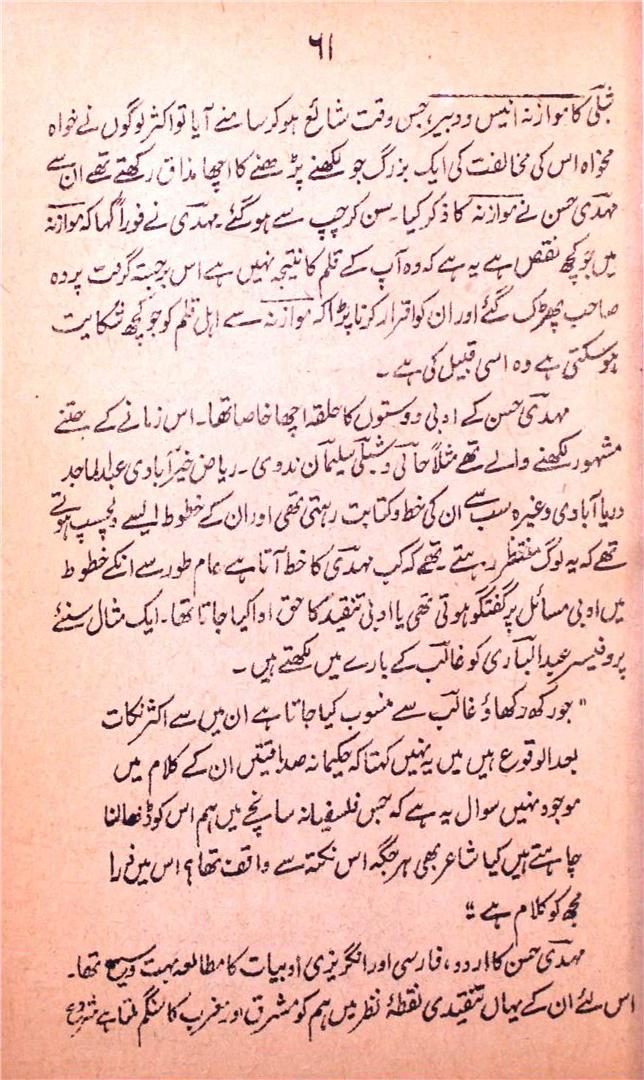 ۶۱
شبلی کا موازنہ انیس و دبیر، جس وقت شائع ہوکر سامنے آیا تو اکثر لوگوں نے خواہ
مخواہ اس کی مخالفت کی ایک بزرگ جو لکھنے پڑھنے کا اچھا مذاق رکھتے تھے ان سے
مہدی حسن نے موازنہ کا ذکر کیا۔ سن کر چپ سے ہوگئے۔ مہدی نے فوراً کہا کہ موازنہ
میں جو کچھ نقص ہے یہ ہے کہ وہ آپ کے قلم کا نتیجہ نہیں ہے اس برجستہ گرفت پر وہ
صاحب پھڑک گئے اور ان کو اقرار کرنا پڑا کہ موازنہ سے اہل قلم کو جو کچھ شکایت
ہوسکتی ہے وہ اسی قبیل کی ہے۔
مہدی حسن کے ادبی دوستوں کا حلقہ اچھا خاصا تھا۔ اس زمانے کے جتنے
مشہور لکھنے والے تھے مثلاً حالی و شبلی سلیمان ندوی۔ ریاض خیرآبادی عبدالماجد
دریاآبادی وغیرہ سب سے ان کی خط و کتابت رہتی تھی اور ان کے خطوط ایسے دلچسپ ہوتے
تھے کہ یہ لوگ منتظر رہتے تھے کہ کب مہدی کا خط آتا ہے عام طور سے انکے خطوط
میں ادبی مسائل پر گفتگو ہوتی تھی یا ادبی تنقید کا حق ادا کیا جاتا تھا۔ ایک مثال سنئے
پروفیسر عبدالباری کو غالب کے بارے میں لکھتے ہیں۔
"جو رکھ رکھاؤ غالب سے منسوب کیا جاتا ہے ان میں سے اکثر نکات
بعد الوقوع ہیں میں یہ نہیں کہتا کہ حکیمانہ صداقتیں ان کے کلام میں
موجود نہیں سوال یہ ہے کہ جس فلسفیانہ سانچے میں ہم اس کو ڈھالنا
چاہتے ہیں کیا شاعر بھی ہر جگہ اس نکتہ سے واقف تھا؟ اس میں ذرا
مجھ کو کلام ہے"
مہدی حسن کا اردو، فارسی اور انگریزی ادبیات کا مطالعہ بہت وسیع تھا۔
اس لئے ان کے یہاں تنقیدی نقطۂ نظر میں ہم کو مشرق اور مغرب کا سنگم ملتا ہے شروع